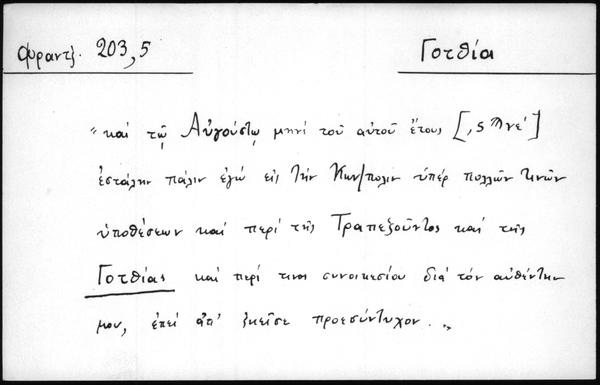 Φραντζ. 203,5
Γοτθία
"καὶ τῷ Αὐγούστῳ μηνὶ τοῦ αὐτοῦ ἔτους [,ϛϡνε']
ἐστάλην πάλιν ἐγώ εἰς τὴν Κων/πολιν ὑπέρ πολλῶν τινῶν
ὑποθέσεων καί περί τῆς Τραπεζοῦντος καί τῆς
Γοτθίας καί περί τινος συνοικεσίου διά τόν αὐθέντην
μου, ἐπεί ἀπ' ἐκεῖσε προεσύντυχον."